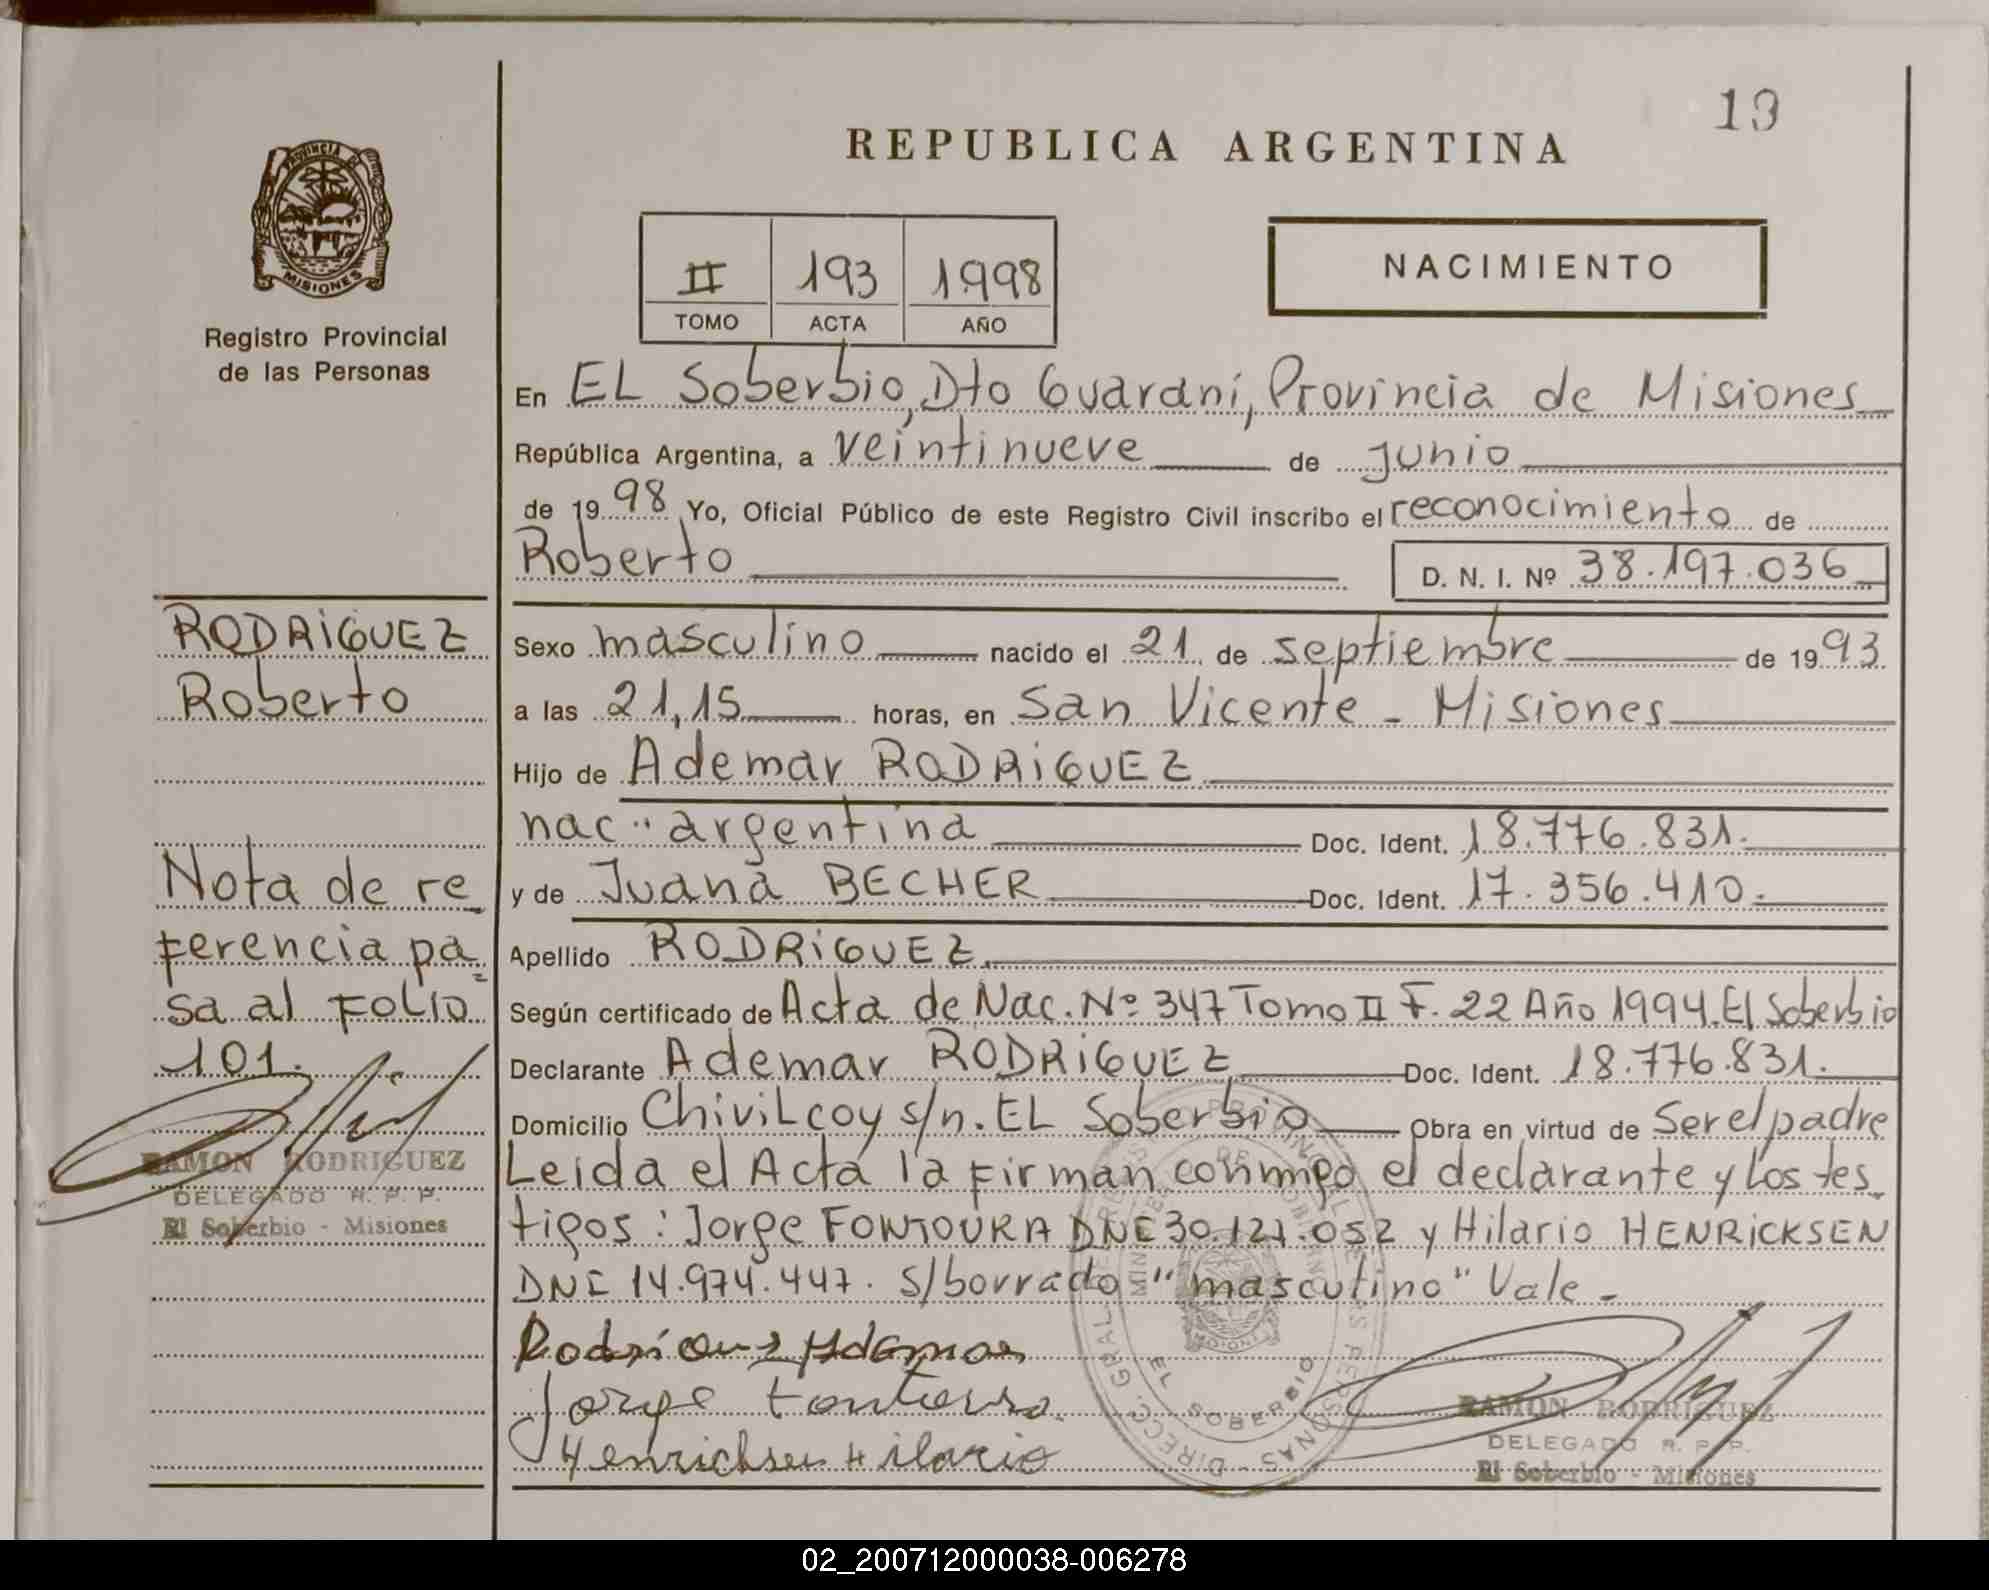 19
REPUBLICA ARGENTINA
PROVINCIA DE
MISIONES
Registro Provincial
de las Personas
II 193 1998
TOMO ACTA AÑO
NACIMIENTO
En EL Soberbio, Dto Guaraní, Provincia de Misiones
República Argentina, a veintinueve de junio
de 1998 Yo, Oficial Público de este Registro Civil inscribo el reconocimiento de
Roberto D. N. I. Nº 38.197.036
RODRiGUEZ
Roberto
Sexo masculino nacido el 21 de septiembre de 1993
a las 21,15 horas, en San Vicente - Misiones
Hijo de Ademar RODRiGUEZ
nac.. argentina Doc. Ident. 18.776.831.
y de Juana BECHER Doc. Ident. 17.356.410.
Apellido RODRiGUEZ
Según certificado de Acta de Nac. Nº 347 Tomo II F. 22 Año 1994. El Soberbio
Declarante Ademar RODRiGUEZ Doc. Ident. 18.776.831.
Domicilio Chivilcoy s/n. EL Soberbio Obra en virtud de Ser el padre
Leida el Acta la firman conmigo el declarante y los tes
tigos: Jorge FONTOURA DNI 30.121.052 y Hilario HENRICKSEN
DNI 14.974.447. S/borrado "masculino" Vale -
Nota de re_
ferencia pa=
sa al FOLIO
101.
RAMON RODRIGUEZ
DELEGADO R. P. P.
El Soberbio - Misiones
Jorge
Henrichsen Hilario
EL SOBERBIO
RAMON RODRIGUEZ
DELEGADO R. P. P.
El Soberbio - Misiones
02_200712000038-006278